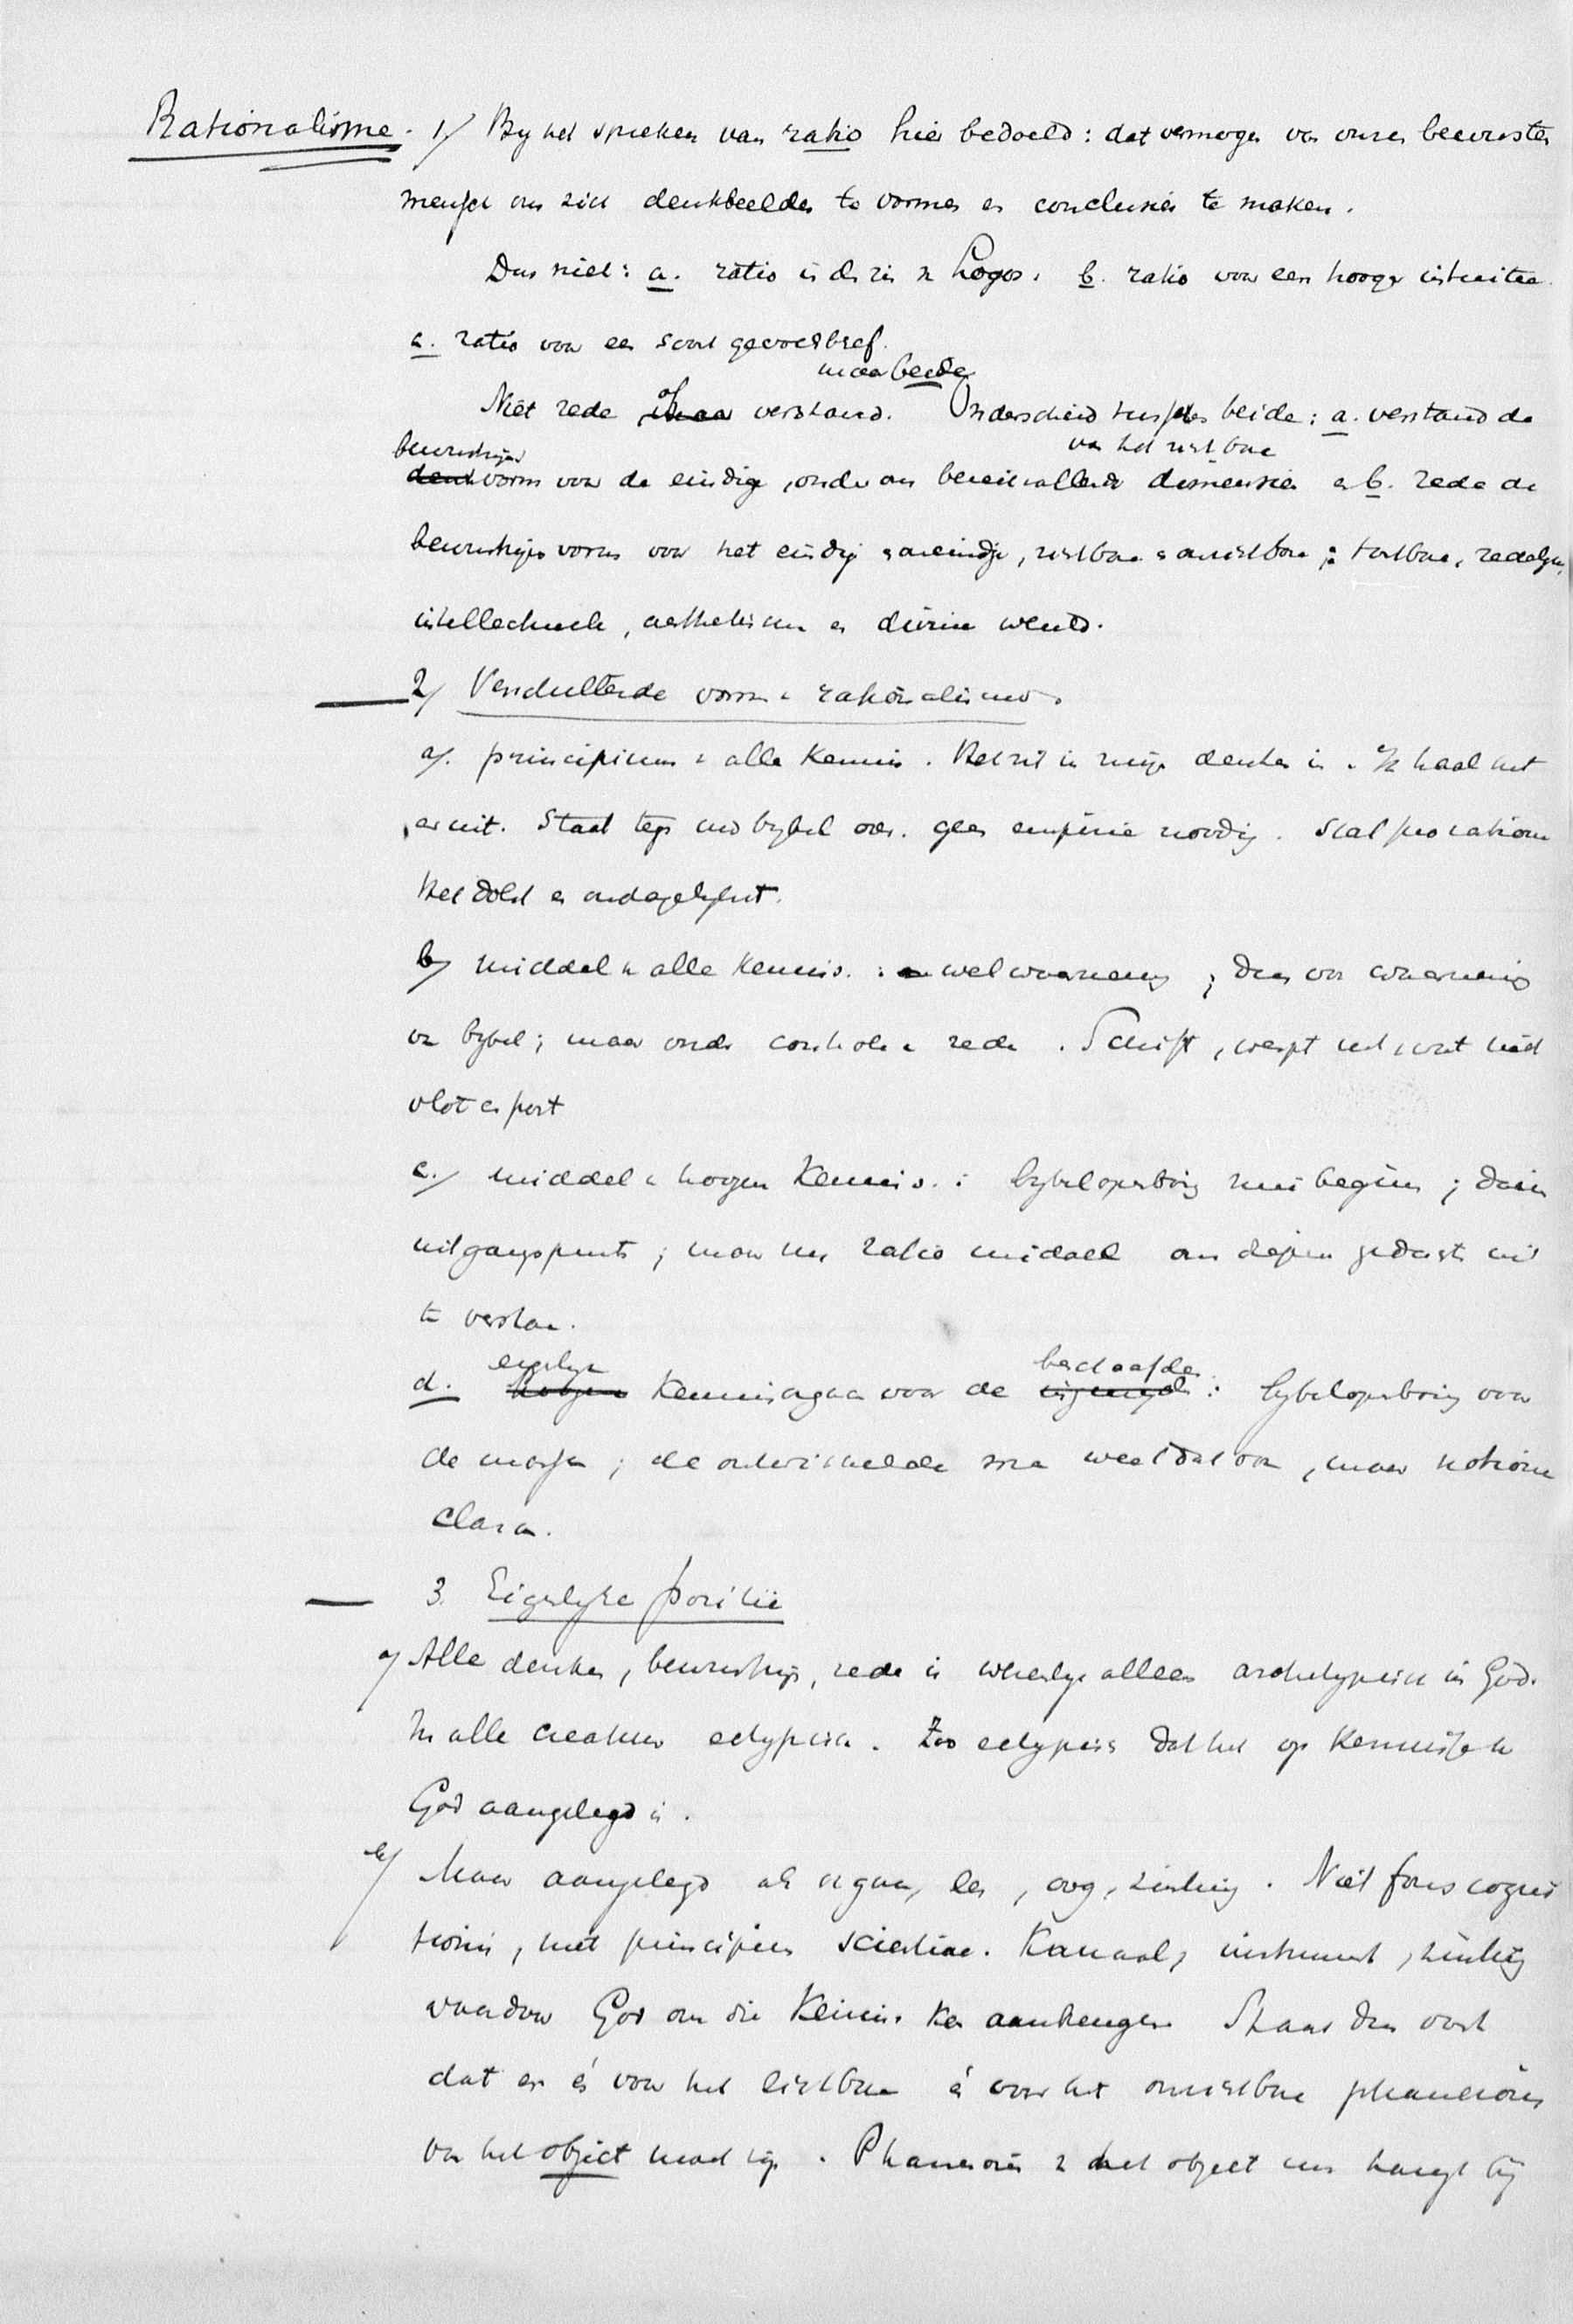 Rationalisme. 1/ By het spreken van ratio hier bedoeld: dat vermogen van onzen bewusten
mensch om zich denkbeelden te vormen en conclusies te maken.
Dus niet: a. ratio in den zin v Logos. b. ratio voor een hooger intuitie.
c. ratio voor een soort gevoelsbesef.
maar beide
Niet rede of verstand. Onderscheid tusschen beide: a. verstand de
bewustzijns van het zichtbare
vorm voor de eindige, onder ons bereik vallende dimensies en b. rede de
bewustzijns vorm voor het eindig en oneindige, zichtbare en onzichtbare; tastbare, redelijke,
intellectueele, aesthetische en divine wereld.
2/ Verschillende vormen v rationalisme.
a/. principium v alle kennis. Het zit in mijn denken in. Ik haal het
er uit. Staat tegen den bybel over. geen empirie noodig. Stat pro ratione
Het dolst en onlogischst.
b/ middel v alle kennis.: wel waarneming; dus ook waarneming
van bybel; maar onder controle v rede. Schift, werpt uit wat niet
vlot en past
c./ middel v hooger kennis.: bybelopenbaring mijn begin; daarin
uitgangspunt; maar nu ratio middel om diepere gedachte uit
te verstaan.
d. eigenlijke kennisorgaan voor de beschaafde: bybelopenbaring voor
de massa; de ontwikkelde weet dat ook, maar notione
clara.
3. Eigenlyke positie
a/ Alle denken, bewustzijn, rede is wezenlijk alleen archetypisch in God.
In alle creatuur ectypisch. Zoo ectypisch dat het op kennisse v
God aangelegd is.
b/ Maar aangelegd als orgaan, lens, oog, zintuig. Niet fons cogni
tionis, niet principium scientiae. Kanaal, instrument, zintuig
waardoor God ons die kennis kan aanbrengen. Staat dus vast
dat er én voor het zichtbare én voor het onzichtbare phanerosis
van het object noodig is. Phanerosis v het object nu hangt bij